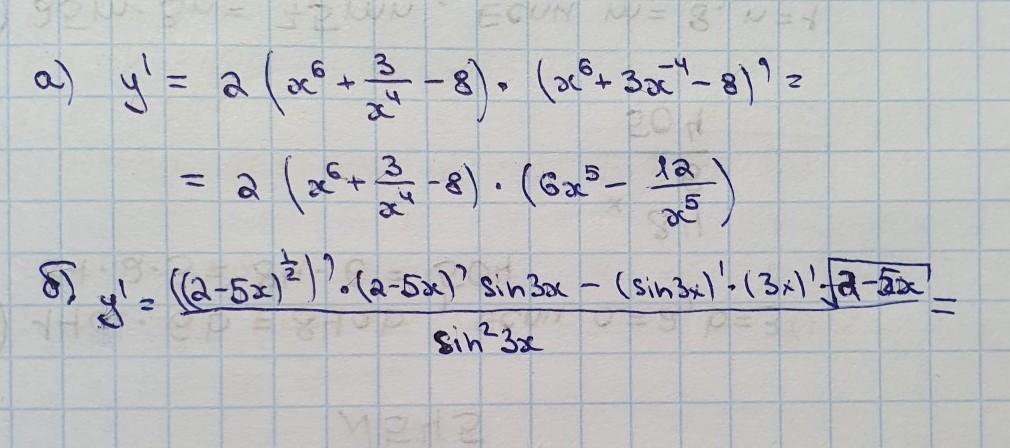 а) y' = 2 (x⁶ + 3/x⁴ − 8) · (x⁶ + 3x⁻⁴ − 8)' =
= 2 (x⁶ + 3/x⁴ − 8) · (6x⁵ − 12/x⁵)
б) y' = (((2−5x)^(1/2))' · (2−5x)' sin3x − (sin3x)' · (3x)' · √(2−5x)) / sin²3x =